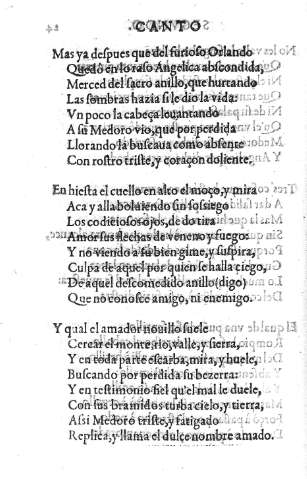 CANTO
Mas ya despues que del furioso Orlando
Quedo en lo raso Angelica abscondida,
Merced del sacro anillo, que hurtando
Las sombras hazia si le dio la vida:
Vn poco la cabeça leuantando
A su Medoro vio, que por perdida
Llorando la buscaua como absente
Con rostro triste, y coraçon doliente.
Enhiesta el cuello en alto el moço, y mira
Aca y alla boluiendo sin sossiego
Los codiciosos ojos, de do tira
Amor sus flechas de veneno, y fuego:
Y no viendo a su bien gime, y suspira,
Culpa de aquel por quien se halla ciego,
De aquel descomedido anillo (digo)
Que no conosce amigo, ni enemigo.
Y qual el amador nouillo suele
Cercar el monte, rio, valle, y sierra,
Y en toda parte escarba, mira, y huele,
Buscando por perdida su bezerra:
Y en testimonio fiel q̃ el mal le duele,
Con sus bramidos turba cielo, y tierra,
Assi Medoro triste, y fatigado
Replica, y llama el dulce nombre amado.